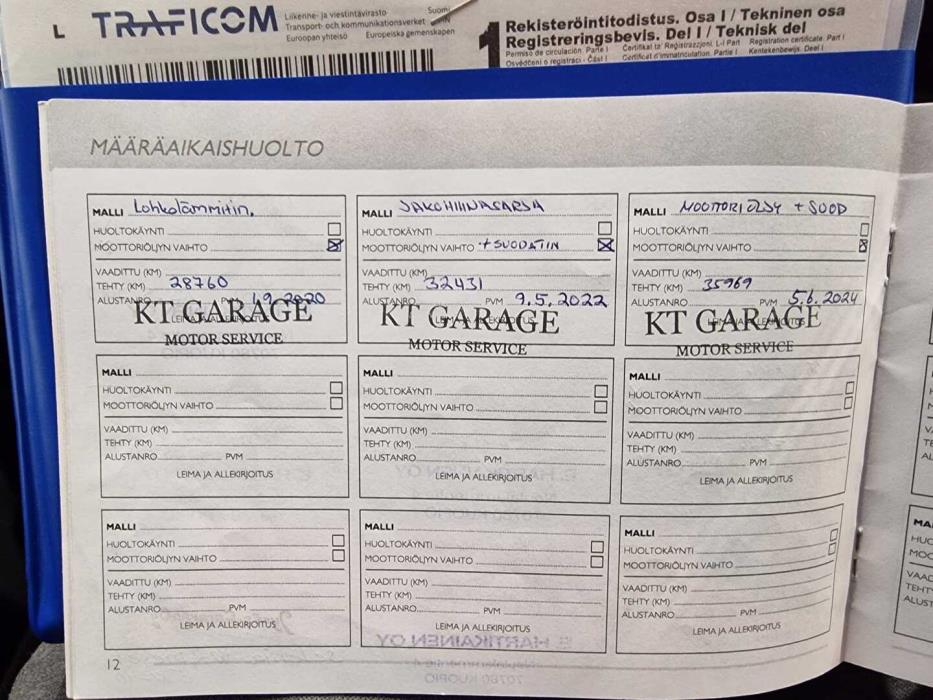 L TRAFICOM
Liikenne- ja viestintävirasto Suomi
Transport- och kommunikationsverket
Euroopan yhteisö Europeiska gemenskapen
1 Rekisteröintitodistus. Osa I / Tekninen osa
Registreringsbevis. Del I / Teknisk del
Permiso de circulación. Parte I Certifikat ta' Reġistrazzjoni. L-I Part Registration certificate. Part I
Osvědčení o registraci - Část I Certificat d'immatriculation. Partie I Kentekenbewijs. Deel I
MÄÄRÄAIKAISHUOLTO
MALLI Lohkolämmitin.
HUOLTOKÄYNTI
MOOTTORIÖLJYN VAIHTO
VAADITTU (KM)
TEHTY (KM) 28760
ALUSTANRO 1.9.2020
LEIMA JA ALLEKIRJOITUS
KT GARAGE
MOTOR SERVICE
MALLI JAKOHIHNASARJA
HUOLTOKÄYNTI
MOOTTORIÖLJYN VAIHTO + SUODATIN
VAADITTU (KM)
TEHTY (KM) 32431
ALUSTANRO PVM 9.5.2022
KT GARAGE
MOTOR SERVICE
MALLI MOOTTORIÖLJY + SUOD
HUOLTOKÄYNTI
MOOTTORIÖLJYN VAIHTO
VAADITTU (KM)
TEHTY (KM) 35969
ALUSTANRO PVM 5.6.2024
KT GARAGE
MOTOR SERVICE
MALLI
HUOLTOKÄYNTI
MOOTTORIÖLJYN VAIHTO
VAADITTU (KM)
TEHTY (KM)
ALUSTANRO PVM
LEIMA JA ALLEKIRJOITUS
MALLI
HUOLTOKÄYNTI
MOOTTORIÖLJYN VAIHTO
VAADITTU (KM)
TEHTY (KM)
ALUSTANRO PVM
LEIMA JA ALLEKIRJOITUS
MALLI
HUOLTOKÄYNTI
MOOTTORIÖLJYN VAIHTO
VAADITTU (KM)
TEHTY (KM)
ALUSTANRO PVM
LEIMA JA ALLEKIRJOITUS
MALLI
HUOLTOKÄYNTI
MOOTTORIÖLJYN VAIHTO
VAADITTU (KM)
TEHTY (KM)
ALUSTANRO PVM
LEIMA JA ALLEKIRJOITUS
MALLI
HUOLTOKÄYNTI
MOOTTORIÖLJYN VAIHTO
VAADITTU (KM)
TEHTY (KM)
ALUSTANRO PVM
LEIMA JA ALLEKIRJOITUS
MALLI
HUOLTOKÄYNTI
MOOTTORIÖLJYN VAIHTO
VAADITTU (KM)
TEHTY (KM)
ALUSTANRO PVM
LEIMA JA ALLEKIRJOITUS
12